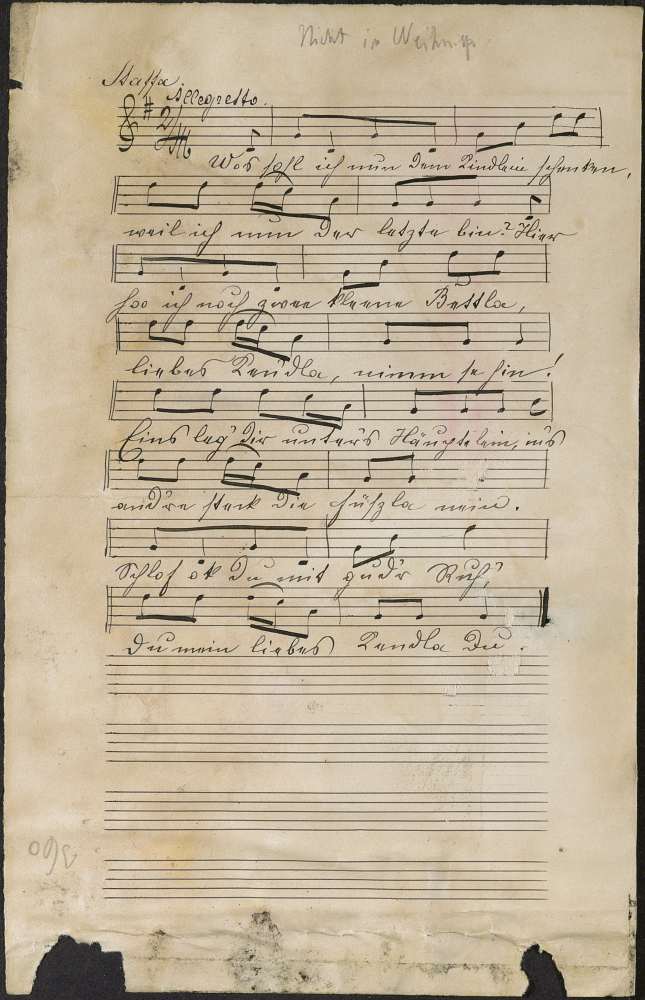 Nicht in
Allegretto.
Wos soll ich nun dem Kindlein schenken,
weil ich nun der letzte bin? Hier
hoo ich noch zwee kleene Bettla,
liebes Kendla, nimm se hin!
Eins leg' dir unter's Häuptelein, in's
and're steck die Füßla nein.
Schlof ok du mit gud'r Ruh',
du mein liebes Kendla du.
360